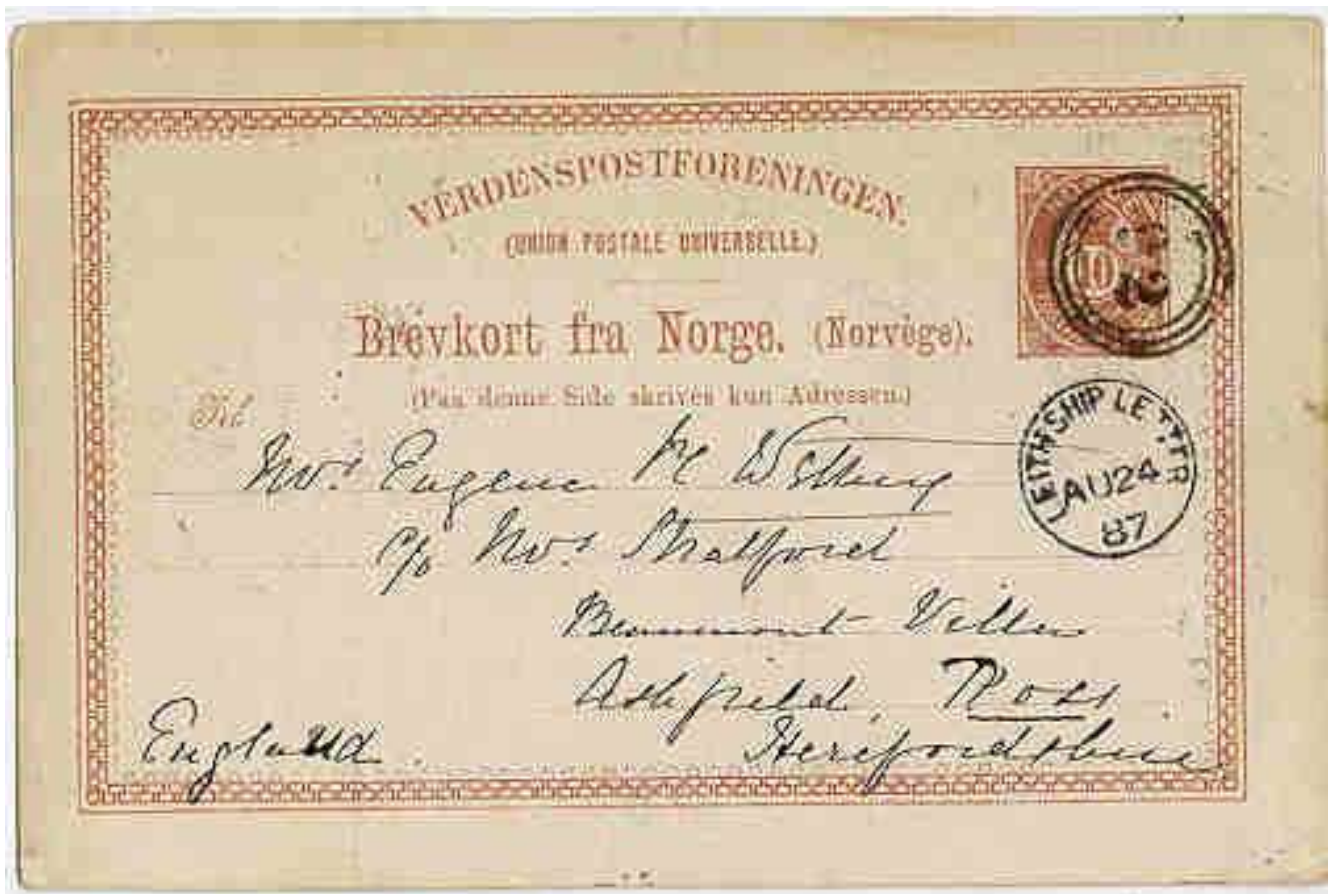 VERDENSPOSTFORENINGEN.
(UNION POSTALE UNIVERSELLE.)
Brevkort fra Norge. (Norvège).
(Paa denne Side skrives kun Adressen.)
Til
10
LEITH SHIP LETTER
AU 24
87
Mrs Eugene
c/o Mrs
Beaumont Villa
Ashfield, Ross
Herefordshire
England.